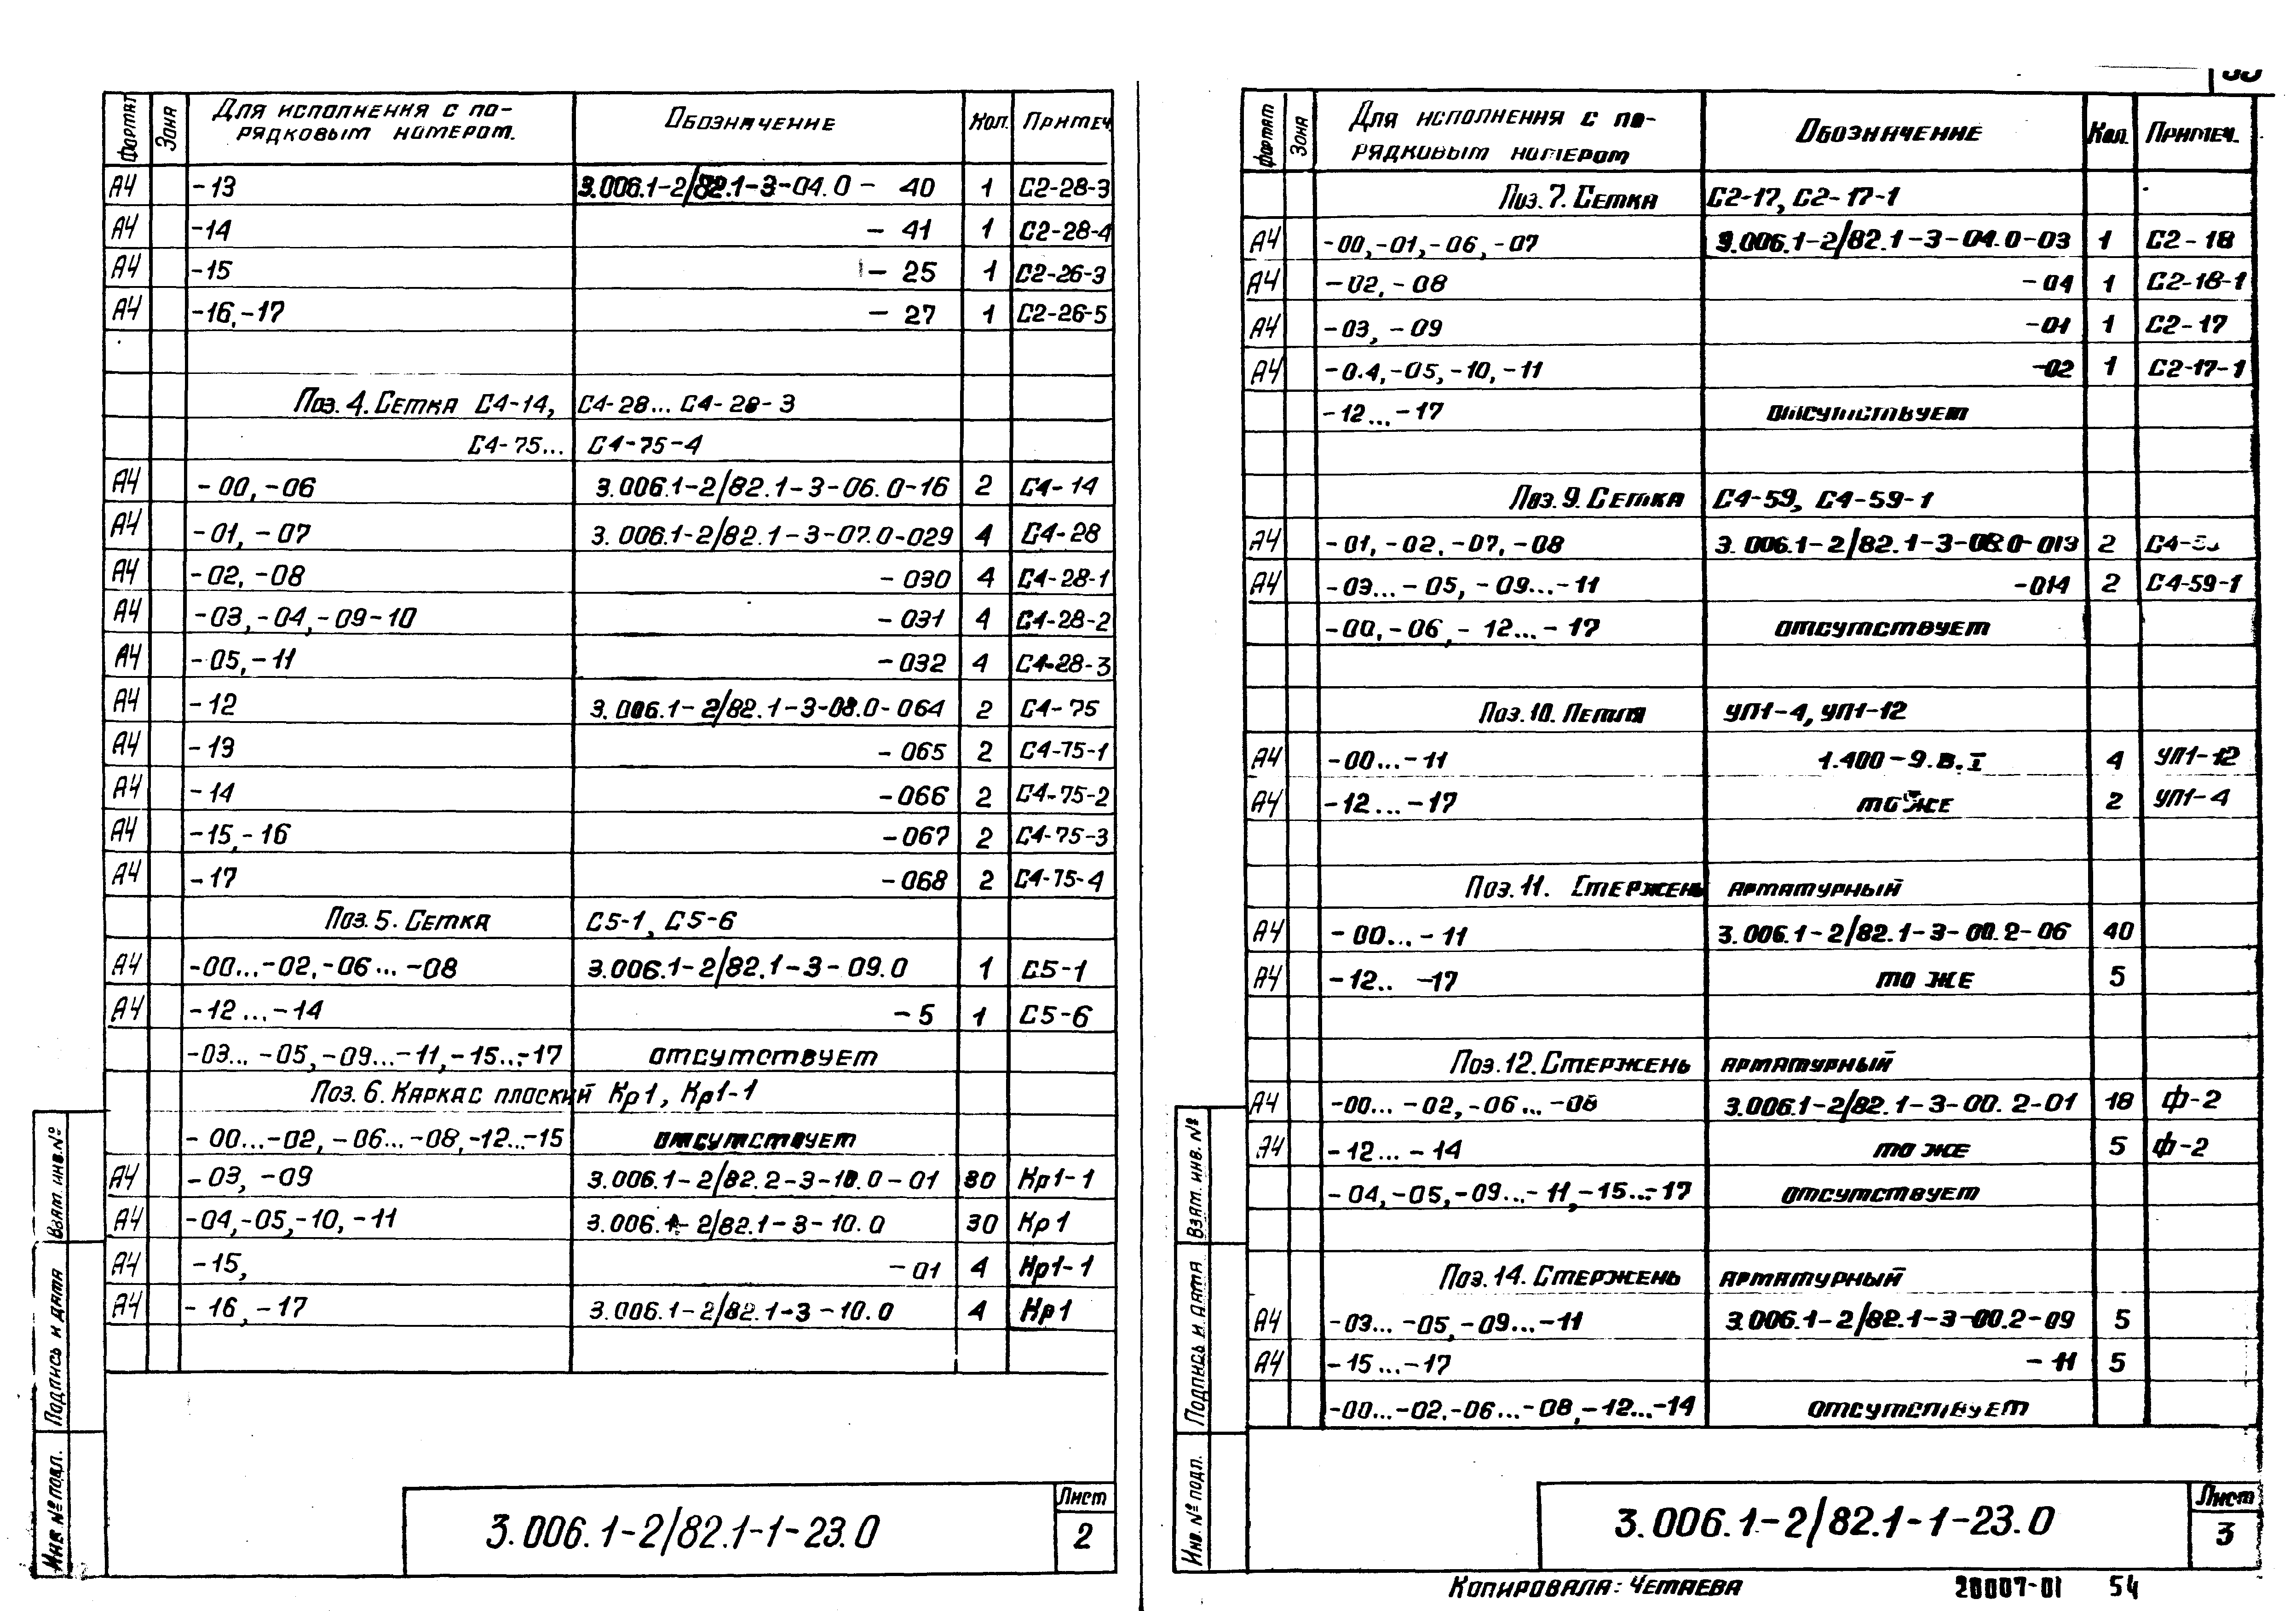 Формат Зона Для исполнения с по- Обозначение Кол. Примеч
рядковым номером.
А4 -13 3.006.1-2/82.1-3-04.0- 40 1 С2-28-3
А4 -14 - 41 1 С2-28-4
А4 -15 - 25 1 С2-26-3
А4 -16,-17 - 27 1 С2-26-5
Поз. 4. Сетка С4-14, С4-28... С4-28-3
С4-75... С4-75-4
А4 -00,-06 3.006.1-2/82.1-3-06.0-16 2 С4-14
А4 -01, -07 3.006.1-2/82.1-3-07.0-029 4 С4-28
А4 -02, -08 -030 4 С4-28-1
А4 -03,-04,-09-10 -031 4 С4-28-2
А4 -05,-11 -032 4 С4-28-3
А4 -12 3.006.1-2/82.1-3-08.0-064 2 С4-75
А4 -13 -065 2 С4-75-1
А4 -14 -066 2 С4-75-2
А4 -15,-16 -067 2 С4-75-3
А4 -17 -068 2 С4-75-4
Поз. 5. Сетка С5-1, С5-6
А4 -00...-02,-06...-08 3.006.1-2/82.1-3-09.0 1 С5-1
А4 -12...-14 -5 1 С5-6
-03...-05,-09...-11,-15...-17 отсутствует
Поз. 6. Каркас плоский Кр1, Кр1-1
-00...-02,-06...-08,-12...-15 отсутствует
А4 -03, -09 3.006.1-2/82.2-3-10.0-01 80 Кр1-1
А4 -04,-05,-10,-11 3.006.1-2/82.1-3-10.0 30 Кр1
А4 -15, -01 4 Кр1-1
А4 -16,-17 3.006.1-2/82.1-3-10.0 4 Кр1
Взам. инв. №
Подпись и дата
Инв № подл.
3.006.1-2/82.1-1-23.0
Лист
2
Формат Зона Для исполнения с по- Обозначение Кол. Примеч.
рядковым номером
Поз. 7. Сетка С2-17, С2-17-1
А4 -00,-01,-06,-07 3.006.1-2/82.1-3-04.0-03 1 С2-18
А4 -02,-08 -04 1 С2-18-1
А4 -03, -09 -01 1 С2-17
А4 -0.4,-05,-10,-11 -02 1 С2-17-1
-12...-17 отсутствует
Поз. 9. Сетка С4-59, С4-59-1
А4 -01,-02,-07,-08 3.006.1-2/82.1-3-08.0-013 2
А4 -03...-05,-09...-11 -014 2 С4-59-1
-00,-06,-12...-17 отсутствует
Поз. 10. Петля УП1-4, УП1-12
А4 -00...-11 1.400-9.В.I 4 УП1-12
А4 -12...-17 то же 2 УП1-4
Поз. 11. Стержень арматурный
А4 -00...-11 3.006.1-2/82.1-3-00.2-06 40
А4 -12.. -17 то же 5
Поз. 12. Стержень арматурный
А4 -00...-02,-06...-08 3.006.1-2/82.1-3-00.2-01 18 Ф-2
А4 -12...-14 то же 5 Ф-2
-04,-05,-09...-11,-15...-17 отсутствует
Поз. 14. Стержень арматурный
А4 -03...-05,-09...-11 3.006.1-2/82.1-3-00.2-09 5
А4 -15...-17 -11 5
-00...-02,-06...-08,-12...-14 отсутствует
Взам. инв. №
Подпись и дата
Инв. № подл.
3.006.1-2/82.1-1-23.0
Лист
3
Копировала: Четаева 20007-01 54